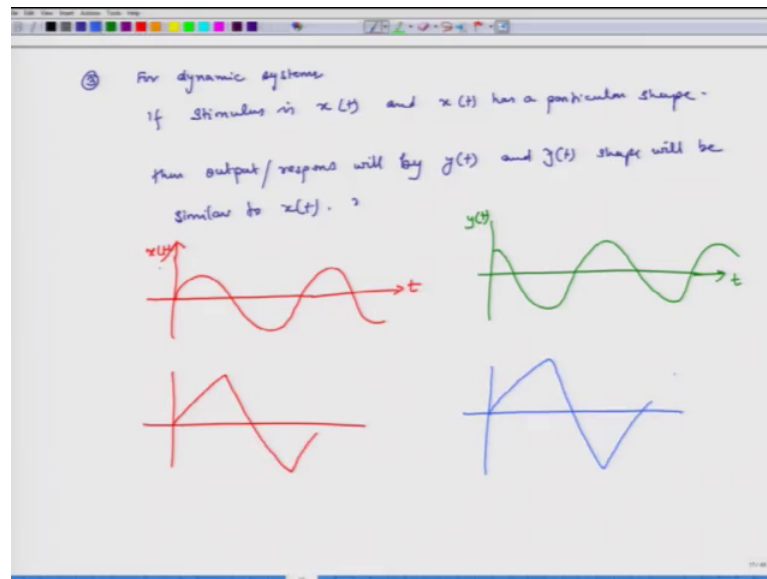 ③ For dynamic systems
If stimulus is x(t) and x(t) has a particular shape.
then output/respons will by y(t) and y(t) shape will be
similar to x(t).
x(t)
t
y(t)
t